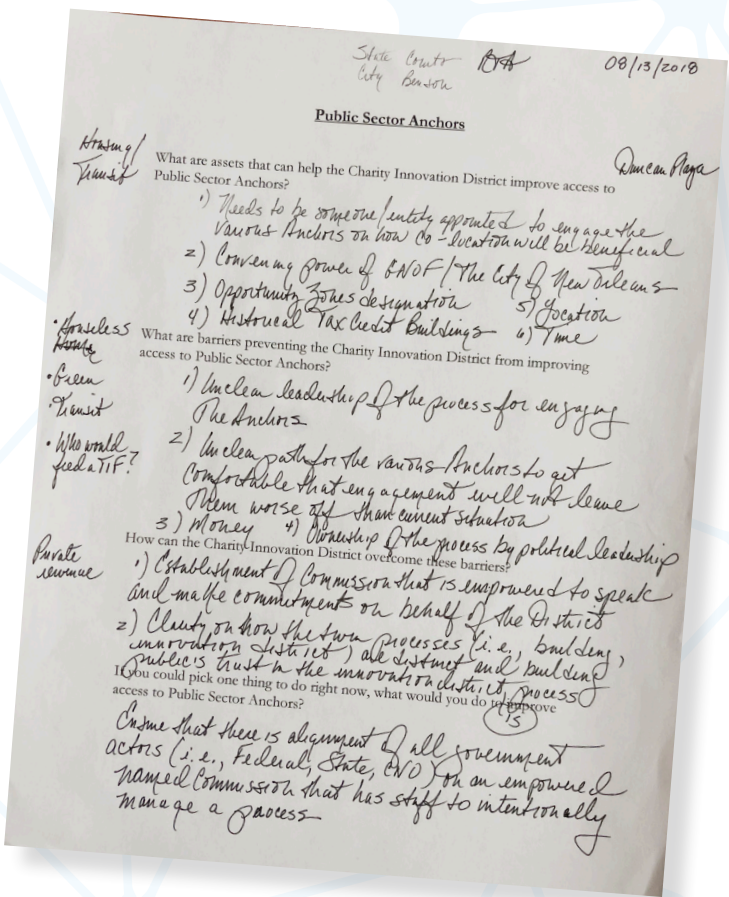 State Courts
City Benson
08/13/2018
Public Sector Anchors
Housing/
Transit
Duncan Plaza
What are assets that can help the Charity Innovation District improve access to
Public Sector Anchors?
1) Needs to be someone/entity appointed to engage the
various Anchors on how co-location will be beneficial
2) Convening power of GNOF/The City of New Orleans
3) Opportunity Zones designation 5) Location
4) Historical Tax Credit Buildings 6) Time
• Houseless
• Green
• Transit
• Who would
feed a TIF?
What are barriers preventing the Charity Innovation District from improving
access to Public Sector Anchors?
1) Unclear leadership of the process for engaging
The Anchors
2) Unclear path for the various Anchors to get
comfortable that engagement will not leave
Them worse off than current situation
3) Money 4) Ownership of the process by political leadership
Private
revenue
How can the Charity Innovation District overcome these barriers?
1) Establishment of Commission that is empowered to speak
and make commitments on behalf of the District
2) Clarity on how the two processes (i.e., building,
innovation district) are distinct and building
public's trust in the innovation district process
If you could pick one thing to do right now, what would you do to improve
access to Public Sector Anchors?
15
Ensure that there is alignment of all government
actors (i.e., Federal, State, CNO) on an empowered
named Commission that has staff to intentionally
manage a process